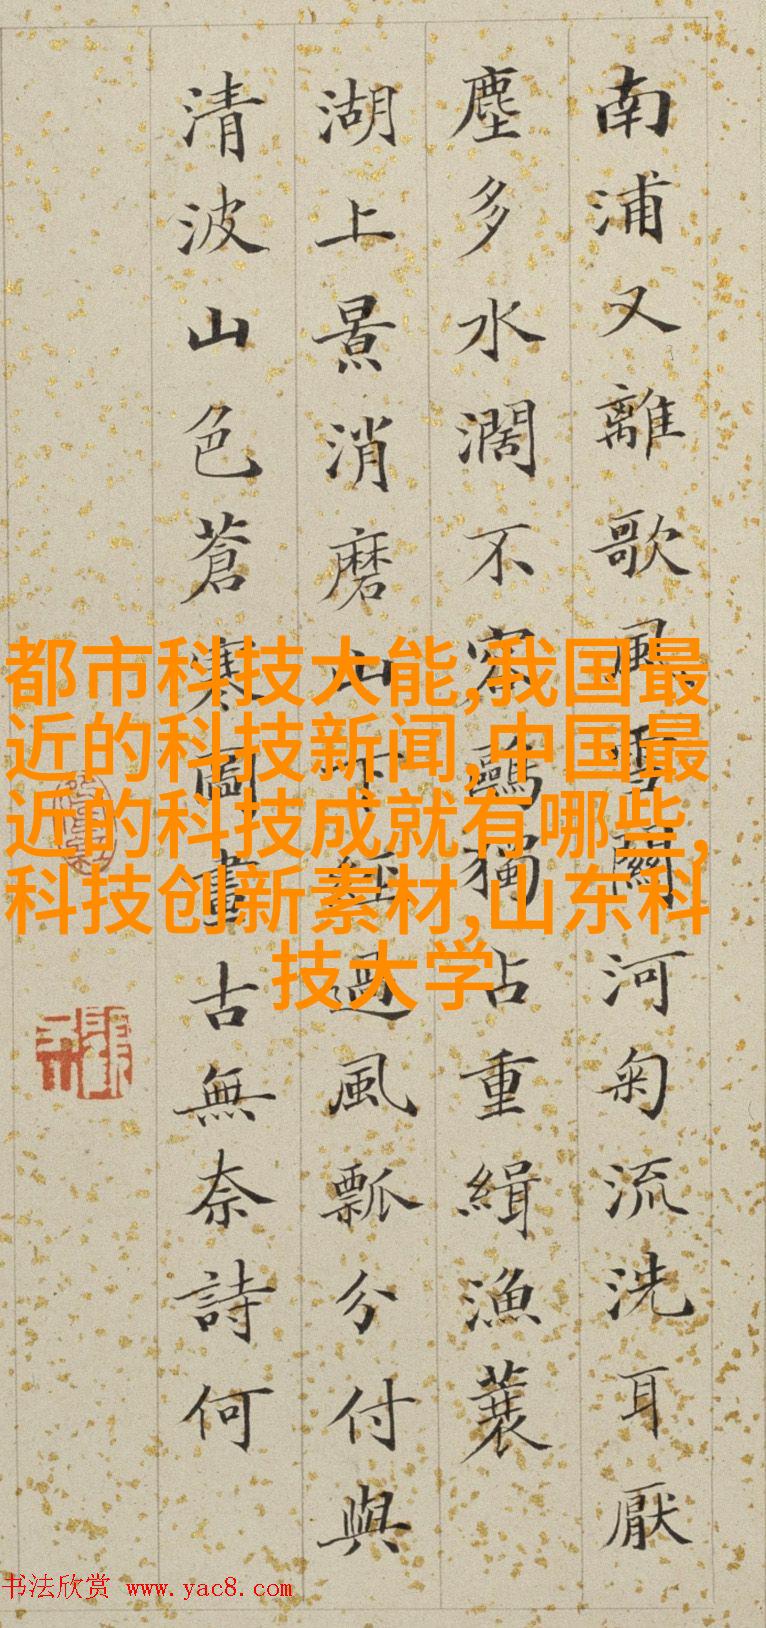 南浦又離歌風雪關河匊流洗耳厭
塵多水濶不容鷗獨占重緝漁蓑
湖上景消磨山經過風瓢分付與
清波山色蒼寒圖畫古無奈詩何
都市科技大能,我国最
近的科技新闻,中国最
近的科技成就有哪些,
科技创新素材,山东科
技大学
书法欣赏 www.yac8.com